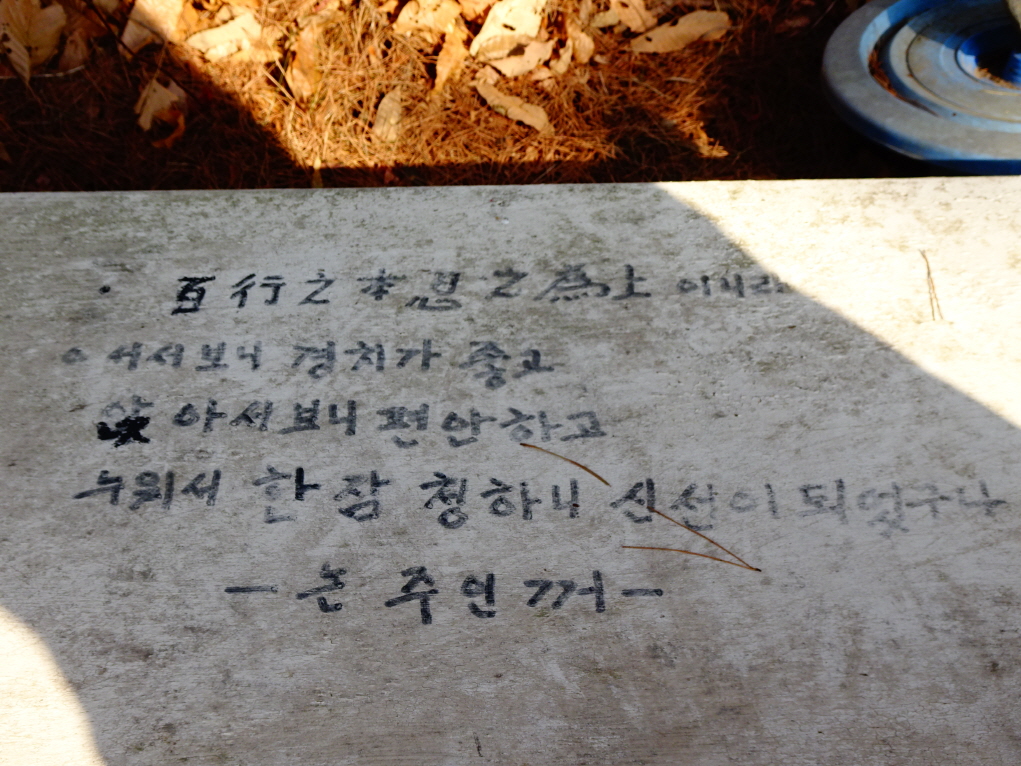 · 百行之本忍之為上 이니라
○ 서서보니 경치가 좋고
앉아서보니 편안하고
누워서 한 잠 청하니 신선이 되엇구나
- 논 주인 꺼 -